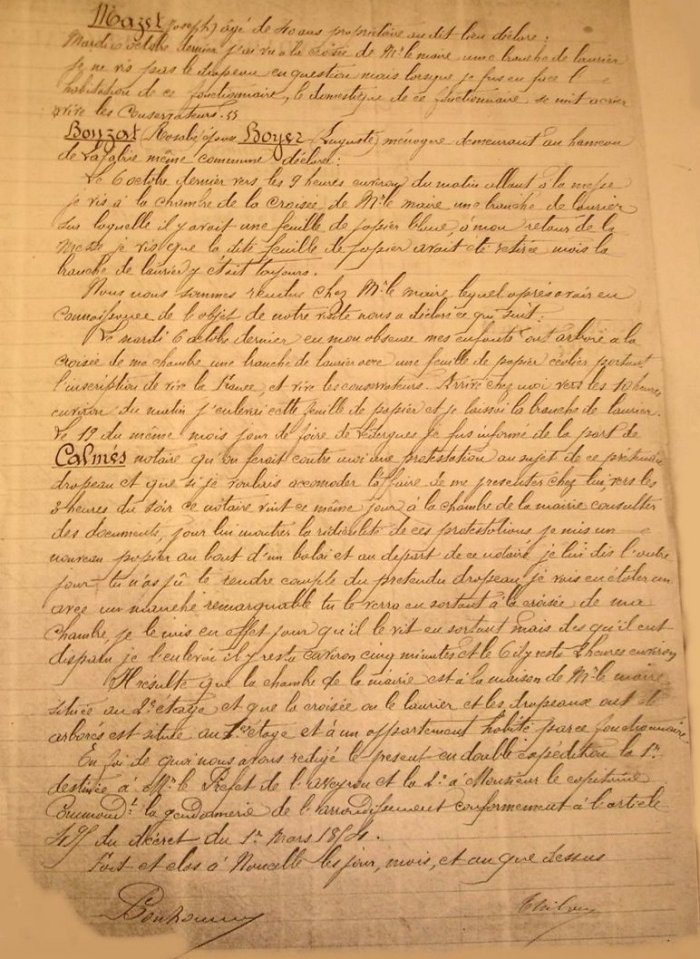 Mazet (Joseph) âgé de 40 ans propriétaire au dit lieu déclare :
Mardi 6 octobre dernier j'ai vu a la croisée de Mr le maire une branche de laurier
Je ne vis pas le drapeau en question mais lorsque je fus en face l
habitation de ce fonctionnaire, le domestique de ce fonctionnaire se mit a crier
vive les Conservateurs. "
Bouzat (Rosalie) épouse Boyer (Auguste) ménagère demeurant au hameau
de Lafabrie même commune déclare :
Le 6 octobre dernier vers les 9 heures environ du matin allant à la messe
je vis à la chambre de la croisée de Mr le maire une branche de laurier
sur laquelle il y avait une feuille de papier bleue, à mon retour de la
messe je vis que la dite feuille de papier avait été retirée mais la
branche de laurier y était toujours.
Nous nous sommes rendus chez Mr le maire lequel après avoir eu
connaissance de l'objet de notre visite nous a déclaré ce qui suit :
Le mardi 6 octobre dernier en mon absence mes enfants ont arboré a la
croisée de ma chambre une branche de laurier avec une feuille de papier écolier portant
l'inscription de vive la France, et vive les conservateurs. Arrivé chez moi vers les 10 heures
environ du matin j'enlevai cette feuille de papier et je laissai la branche de laurier.
Le 12 du même mois jour de foire de je fus informé de la part de
Calmés notaire qu'on ferait contre moi une protestation au sujet de ce prétendu
drapeau et que si je voulais accomoder l'affaire de me présenter chez lui, vers les
3 heures du soir ce notaire vint ce même jour à la chambre de la mairie consulter
des documents, pour lui montrer la de ces protestations je mis un
nouveau papier au bout d'un balai et au départ de ce notaire je lui dis l'autre
jour tu n'as pû te rendre compte du prétendu drapeau, je vais en étaler un
avec un manche remarquable tu le verra en sortant à la croisée de ma
chambre, je le mis en effet pour qu'il le vit en sortant mais dès qu'il eut
disparu je l'enlevai il y resta environ cinq minutes et le 6 il y resta 2 heures environ
Il résulte que la chambre de la mairie est à la maison de Mr le maire
située au 2e étage et que la croisée ou le laurier et les drapeaux ont été
arborés est située au 1er étage et à un appartement habité par ce fonctionnaire.
En foi de quoi nous avons rédigé le présent en double expédition la 1re
destinée à Mr le Préfet de l'Aveyron et la 2e à Monsieur le capitaine
Commandt la gendarmerie de l'arrondissement conformement à l'article
495 du décret du 1er Mars 1854.
Fait et clos à les jour, mois, et an que dessus
Bonhomme